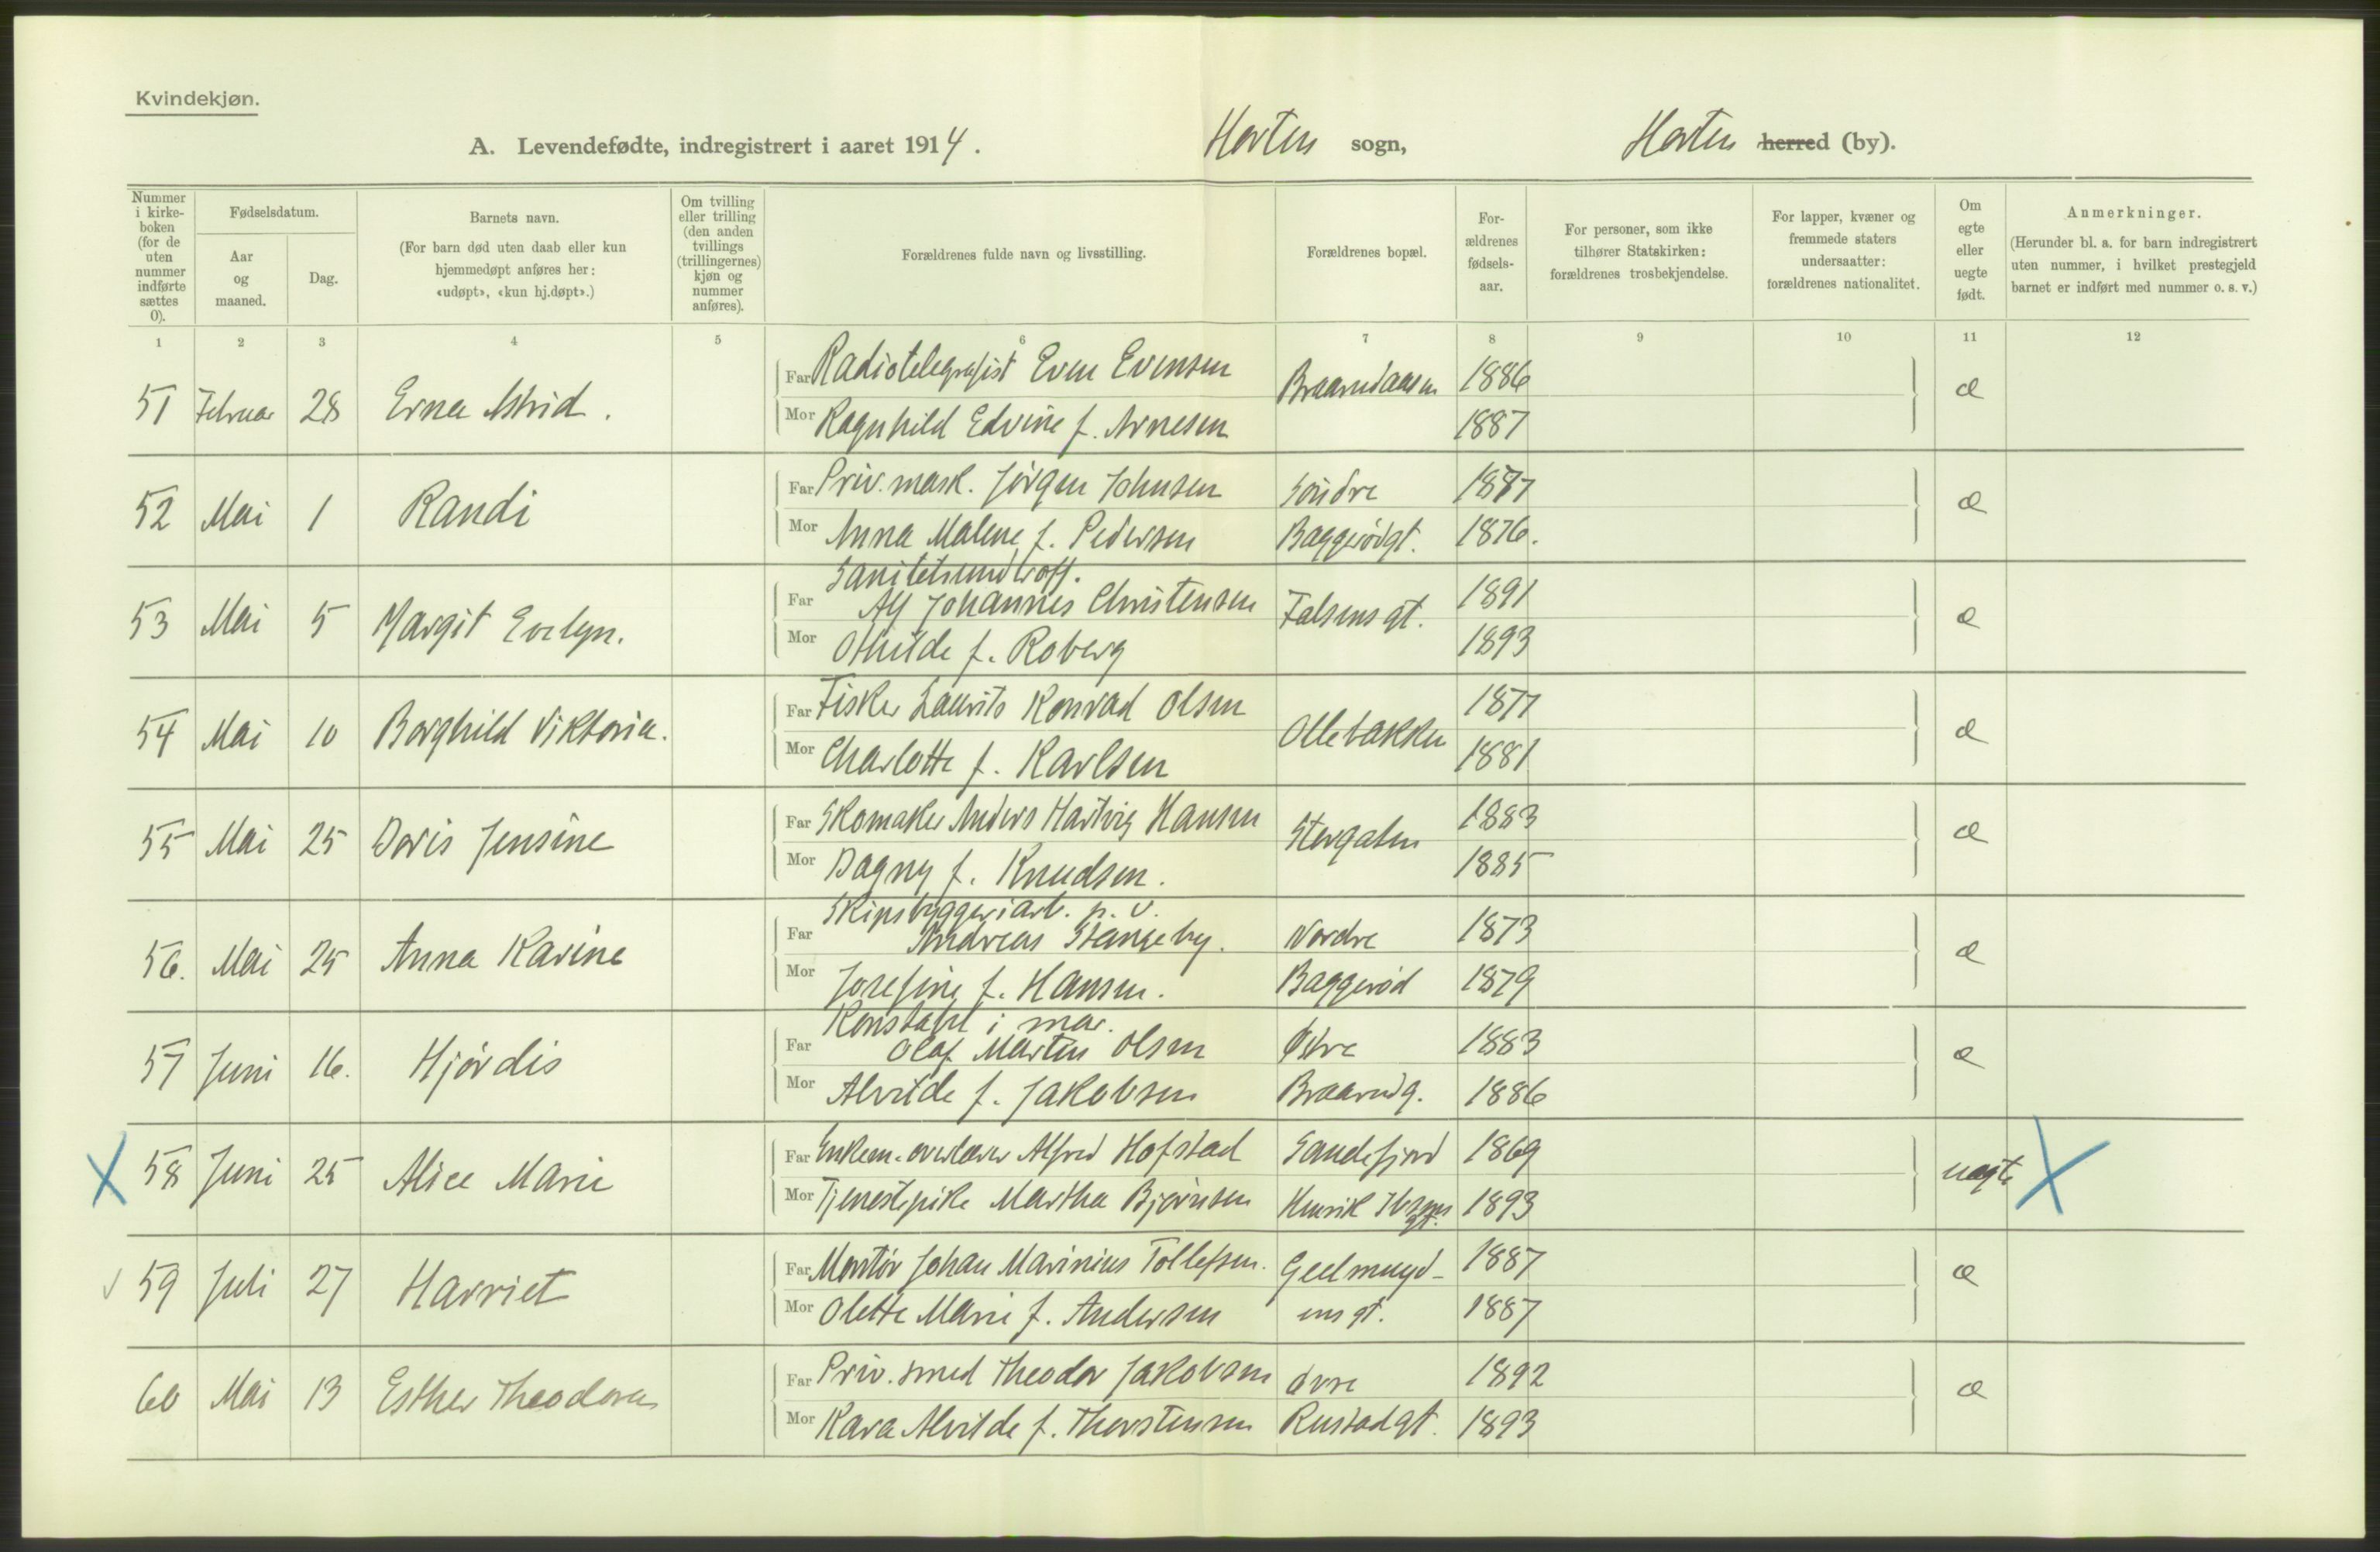 Kvindekjøn.
A. Levendefødte, indregistrert i aaret 1914. Horten sogn, Horten herred (by).
Nummer i kirke-boken (for de uten nummer indførte sættes 0).
Fødselsdatum.
Aar og maaned.
Dag.
Barnets navn.
(For barn død uten daab eller kun hjemmedøpt anføres her: «udøpt», «kun hj.døpt».)
Om tvilling eller trilling (den anden tvillings (trillingernes) kjøn og nummer anføres).
Forældrenes fulde navn og livsstilling.
Forældrenes bopæl.
For-ældrenes fødsels-aar.
For personer, som ikke tilhører Statskirken: forældrenes trosbekjendelse.
For lapper, kvæner og fremmede staters undersaatter: forældrenes nationalitet.
Om egte eller uegte født.
Anmerkninger.
(Herunder bl. a. for barn indregistrert uten nummer, i hvilket prestegjeld barnet er indført med nummer o. s. v.)
1 2 3 4 5 6 7 8 9 10 11 12
Far Radiotelegrafist Even Evensen 1886
51 Februar 28 Erna Astrid. Braarudaasen æ
Mor Ragnhild Edvine f. Arnesen 1887
Far Priv. mask. Jörgen Johnsen Söndre 1887
52 Mai 1 Randi æ
Mor Anna Malene f. Pedersen Baggerödgt. 1876.
Sanitetsundroff.
Far Alf Johannes Christensen 1891
53 Mai 5 Margit Evelyn. Falsens gt. æ
Mor Othilde f. Roberg 1893
Far Fisker Laurits Konrad Olsen 1877
54 Mai 10 Borghild Viktoria. Ollebakken æ
Mor Charlotte f. Karlsen 1881
Far Skomaker Anders Hartvig Hansen 1883
55 Mai 25 Doris Jensine Storgaten æ
Mor Dagny f. Knudsen. 1885
Skipsbyggeriarb. p. v.
Far Andreas Stangeby. Nordre 1873
56. Mai 25 Anna Karine æ
Mor Josefine f. Hansen. Baggeröd 1879
Konstabel i mar.
Far Olaf Martin Olsen Østre 1883
57 Juni 16. Hjördis æ
Mor Alvilde f. Jakobsen Braarudg. 1886
Far Enkem. overlærer Alfred Hofstad Sandefjord 1869
58 Juni 25 Alice Marie uegte
Mor Tjenestepike Martha Bjørnsen Henrik Ibsens gt. 1893
Far Montör Johan Marinius Tollefsen. Geelmuyd- 1887
59 Juli 27 Harriet æ
Mor Olette Marie f. Andersen ens gt. 1887
Far Priv. smed Theodor Jakobsen Øvre 1892
60 Mai 13 Esther Theodora æ
Mor Kara Alvilde f. Thorstensen Rustadgt. 1893